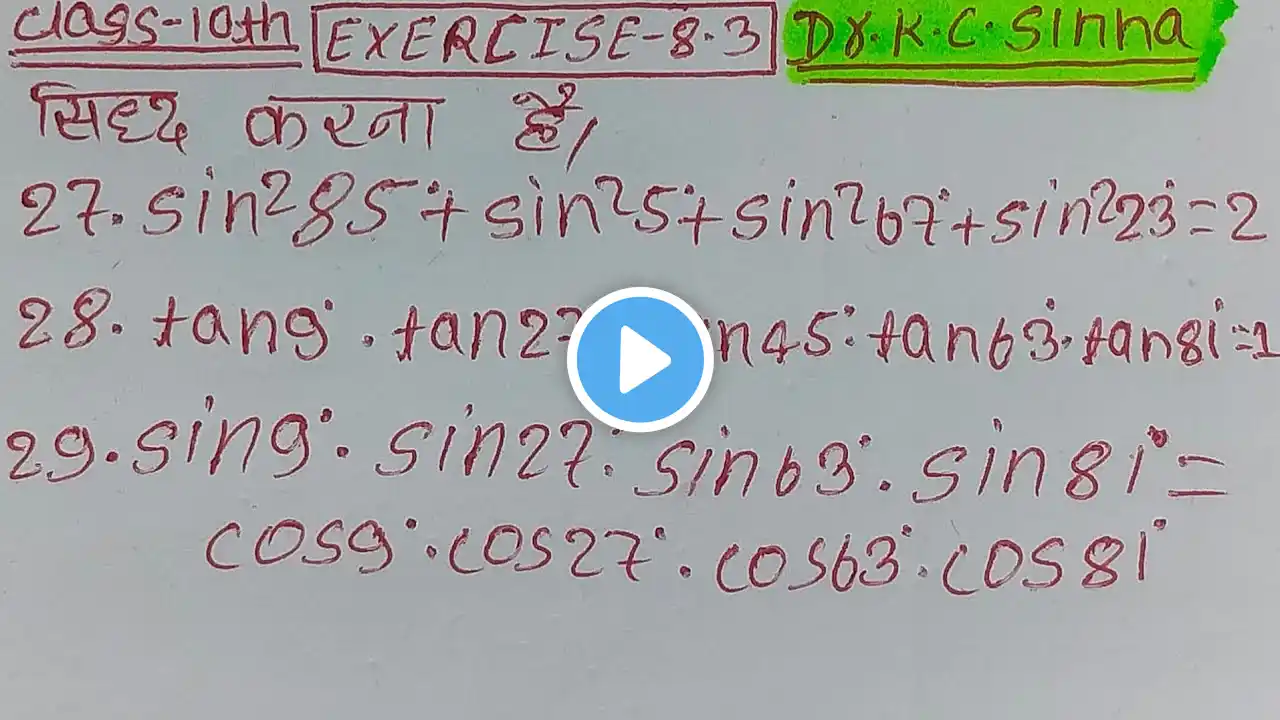 class-10th EXERCISE-8.3 Dr.K.C.Sinha
सिध्द करना है,
27. sin²85°+ sin²5°+ sin²67°+ sin²23°=2
28. tan9°. tan27 n45°. tan63°.tan81°=1
29. sin9°. sin27°. sin63°. sin81°=
cos9°.cos27°. cos63°.cos81°